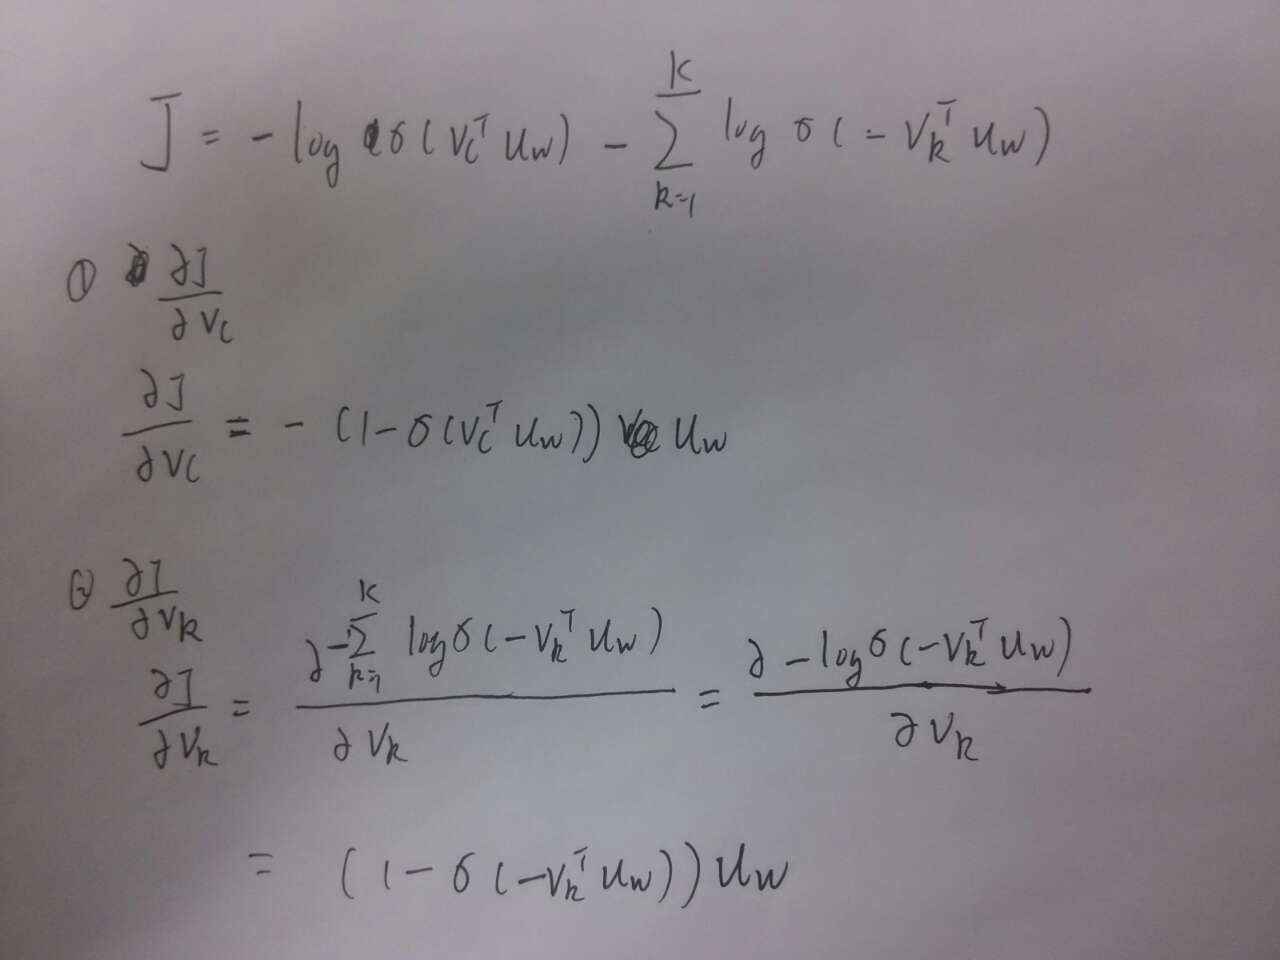 J = - log σ(V_c^T U_w) - ∑_{k=1}^{K} log σ(-V_k^T U_w)
① ∂J/∂V_c
∂J/∂V_c = - (1-σ(V_c^T U_w)) U_w
② ∂J/∂V_k
∂J/∂V_k = ∂-∑_{k=1}^{K} log σ(-V_k^T U_w)/∂V_k = ∂-log σ(-V_k^T U_w)/∂V_k
= (1-σ(-V_k^T U_w)) U_w